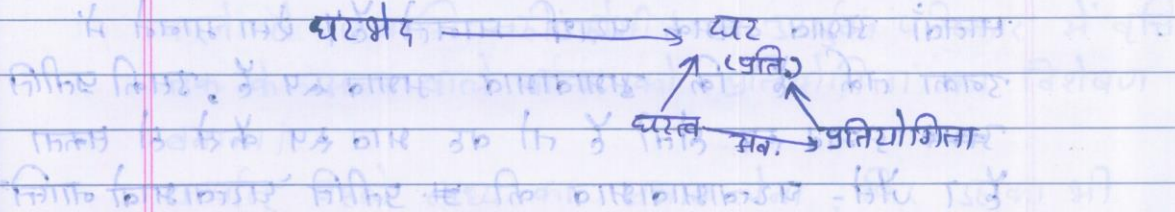 घटभेद → घट
(प्रति.)
घटत्व अव. → प्रतियोगिता